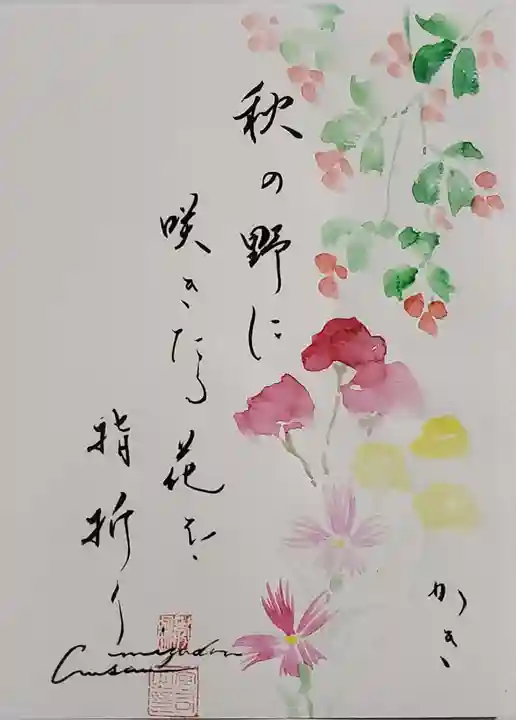 秋の野に
咲きたる花を
指折り
かき